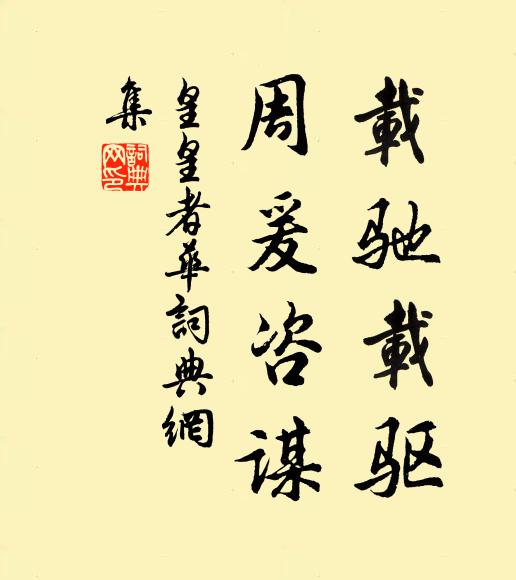 載驰載驱
周爰咨谋
皇皇者華詞典網
集
詞典
网印